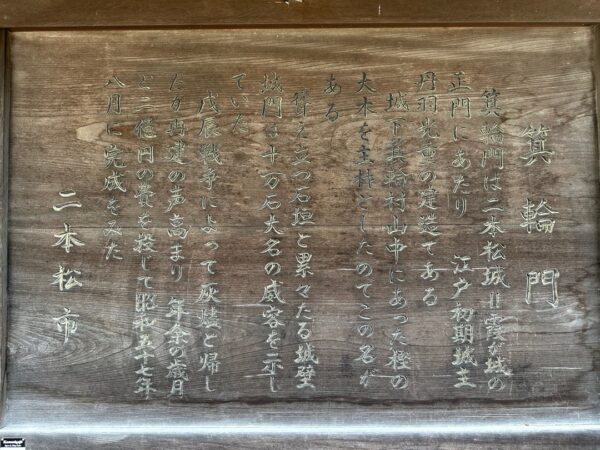 箕輪門
箕輪門は二本松城〓霞が城の
正門にあたり　江戸初期城主
丹羽光重の建造である
城下箕輪村山中にあった樫の
大木を主柱としたのでこの名が
ある
聳え立つ石垣と累々たる城壁
城門は十万石大名の威容を示し
ていた
戊辰戦争によって灰燼と帰し
たが再建の声高まり　年余の歳月
と二億円の費を投じて昭和五十七年
八月に完成をみた
二本松市